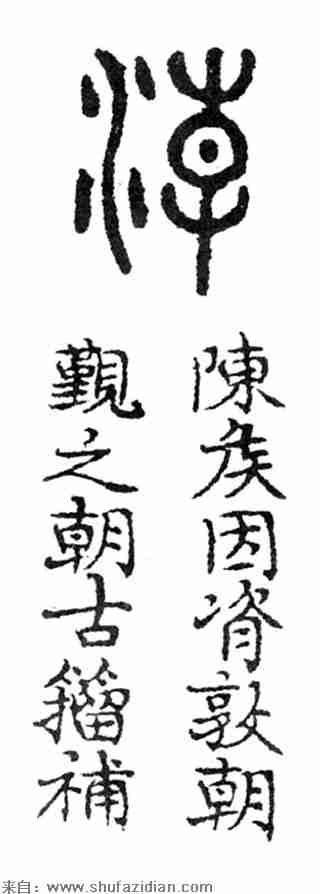 陳矦因敦朝
覲之朝古籀補
来自：www.shufazidian.com